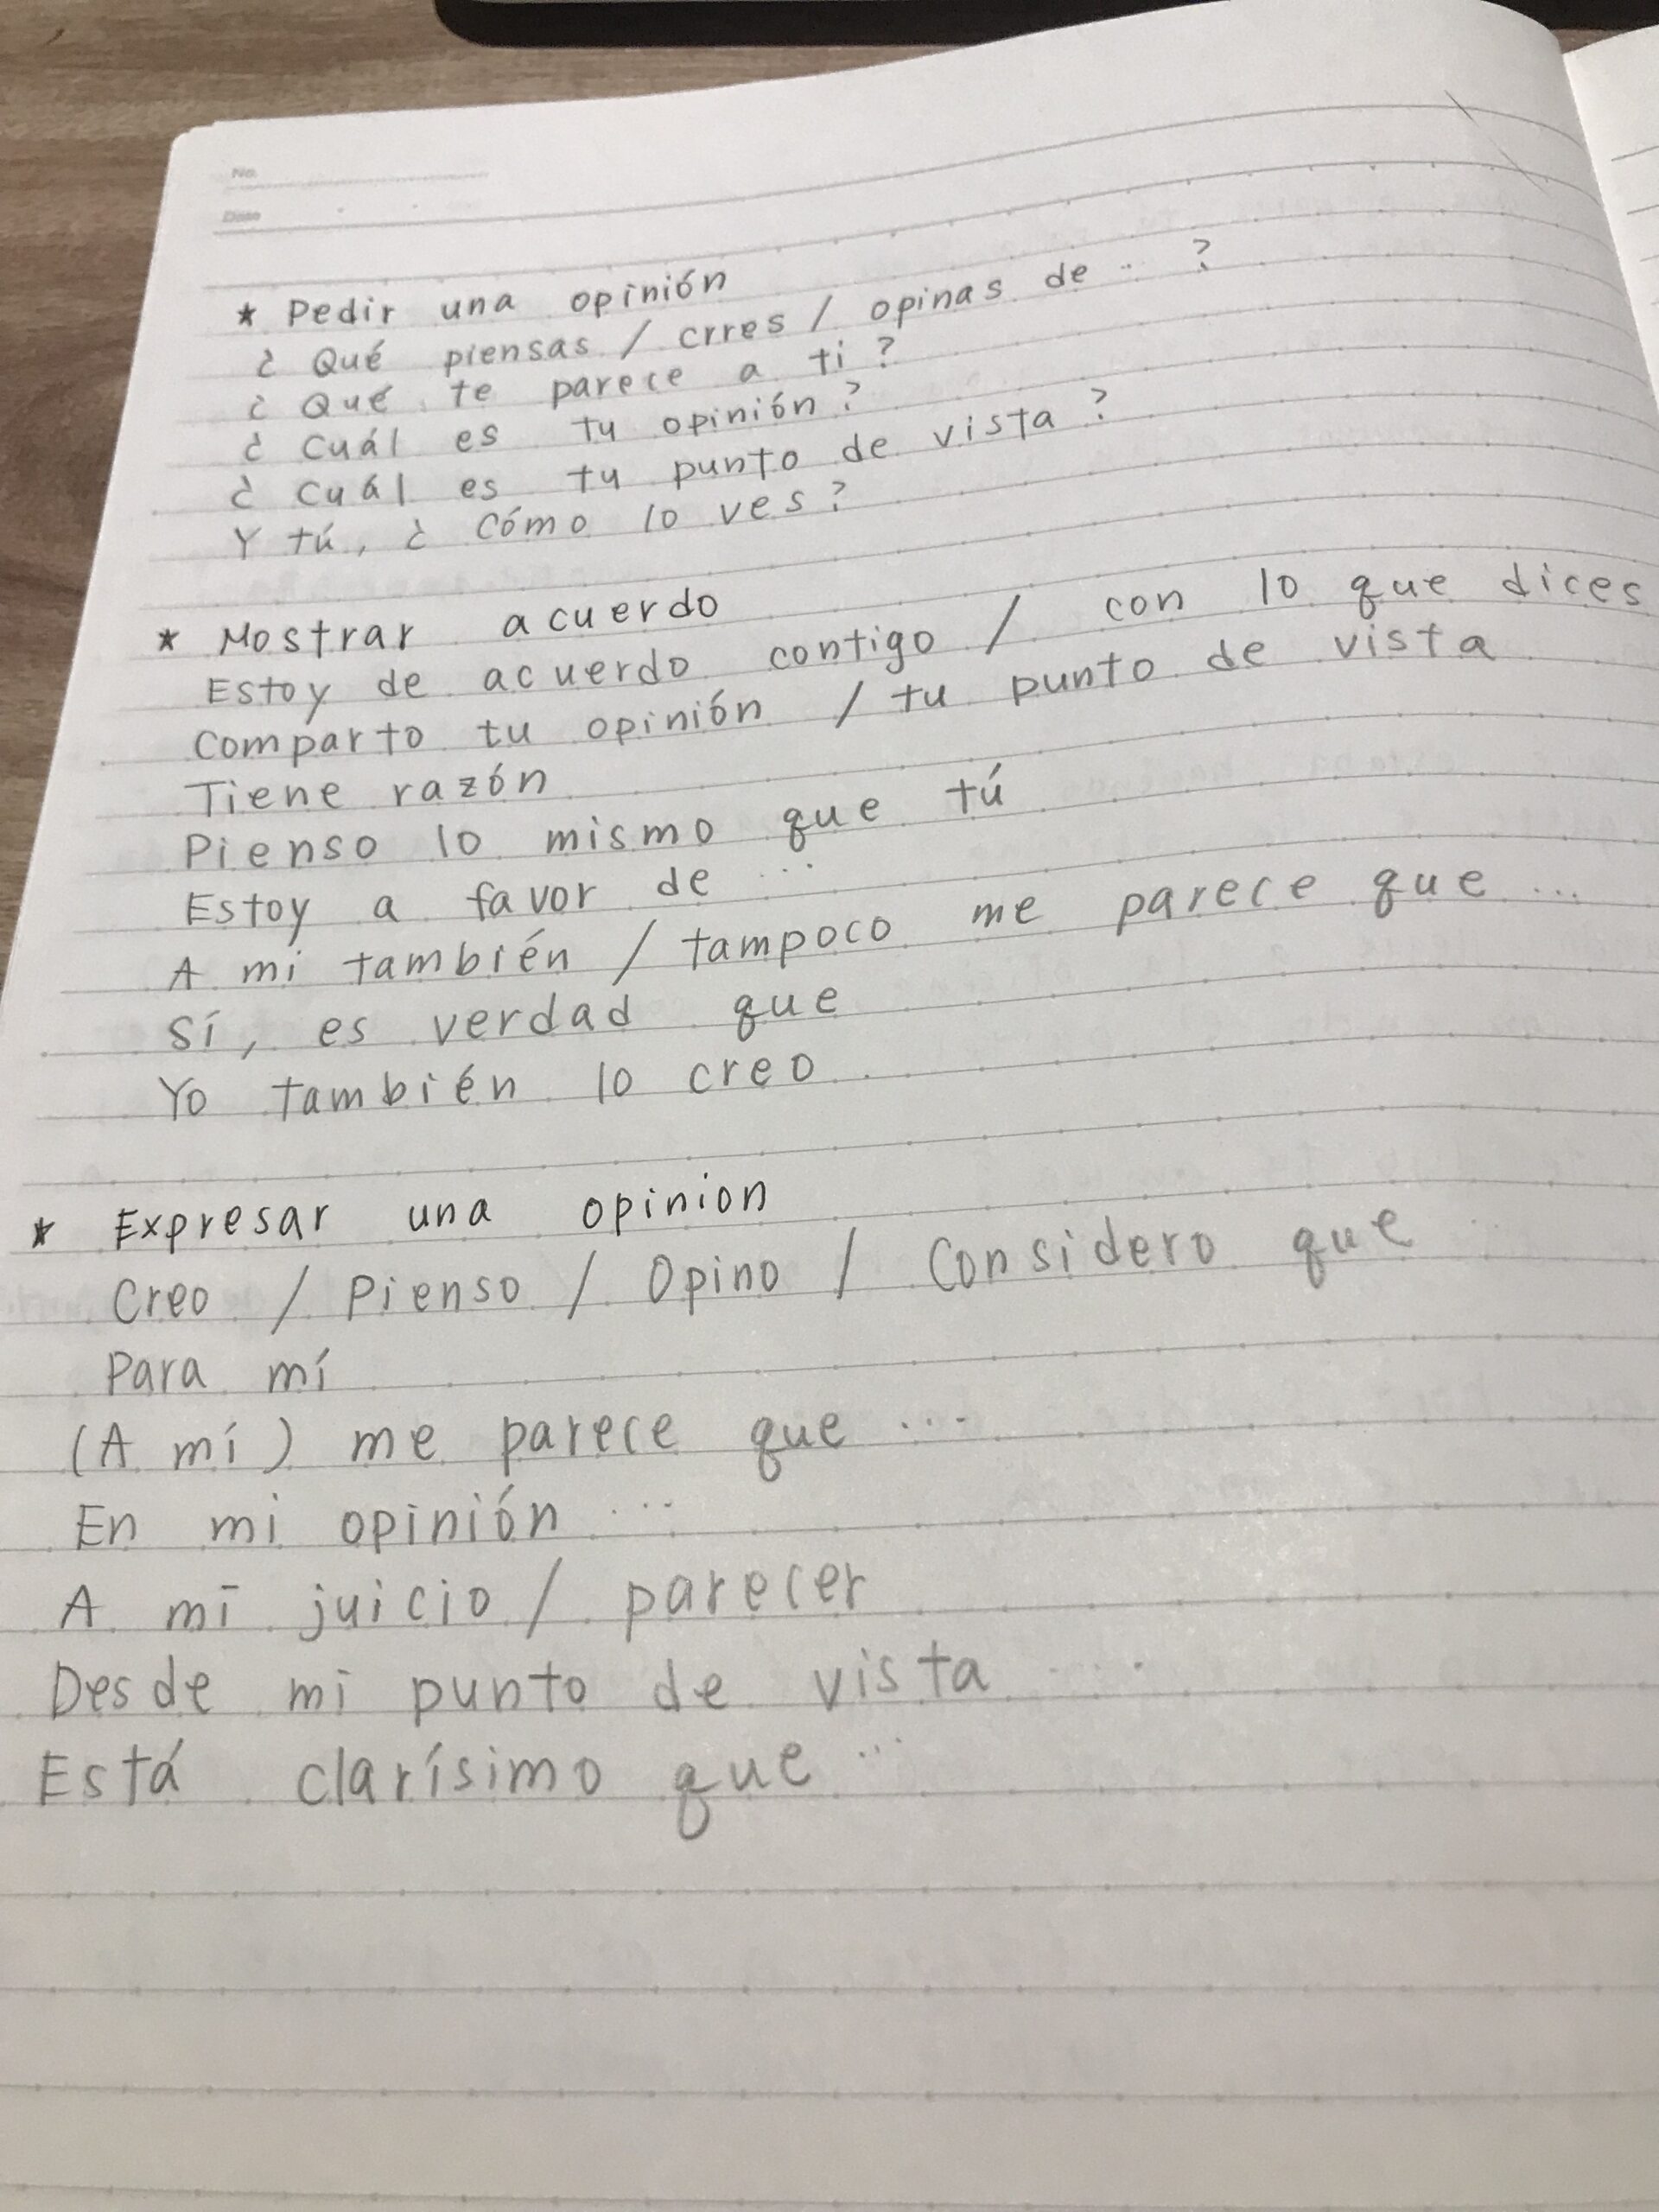 No.
Date
* Pedir una opinión
¿ Qué piensas / crres / opinas de ... ?
¿ Qué te parece a ti ?
¿ Cuál es tu opinión ?
¿ Cuál es tu punto de vista ?
Y tú, ¿ Cómo lo ves ?
* Mostrar acuerdo
Estoy de acuerdo contigo / con lo que dices
Comparto tu opinión / tu punto de vista
Tiene razón
Pienso lo mismo que tú
Estoy a favor de ...
A mi también / tampoco me parece que ...
Sí, es verdad que
Yo también lo creo
* Expresar una opinion
Creo / Pienso / Opino / Considero que ...
Para mí
(A mí) me parece que ...
En mi opinión ...
A mi juicio / parecer
Desde mi punto de vista ...
Está clarísimo que ...